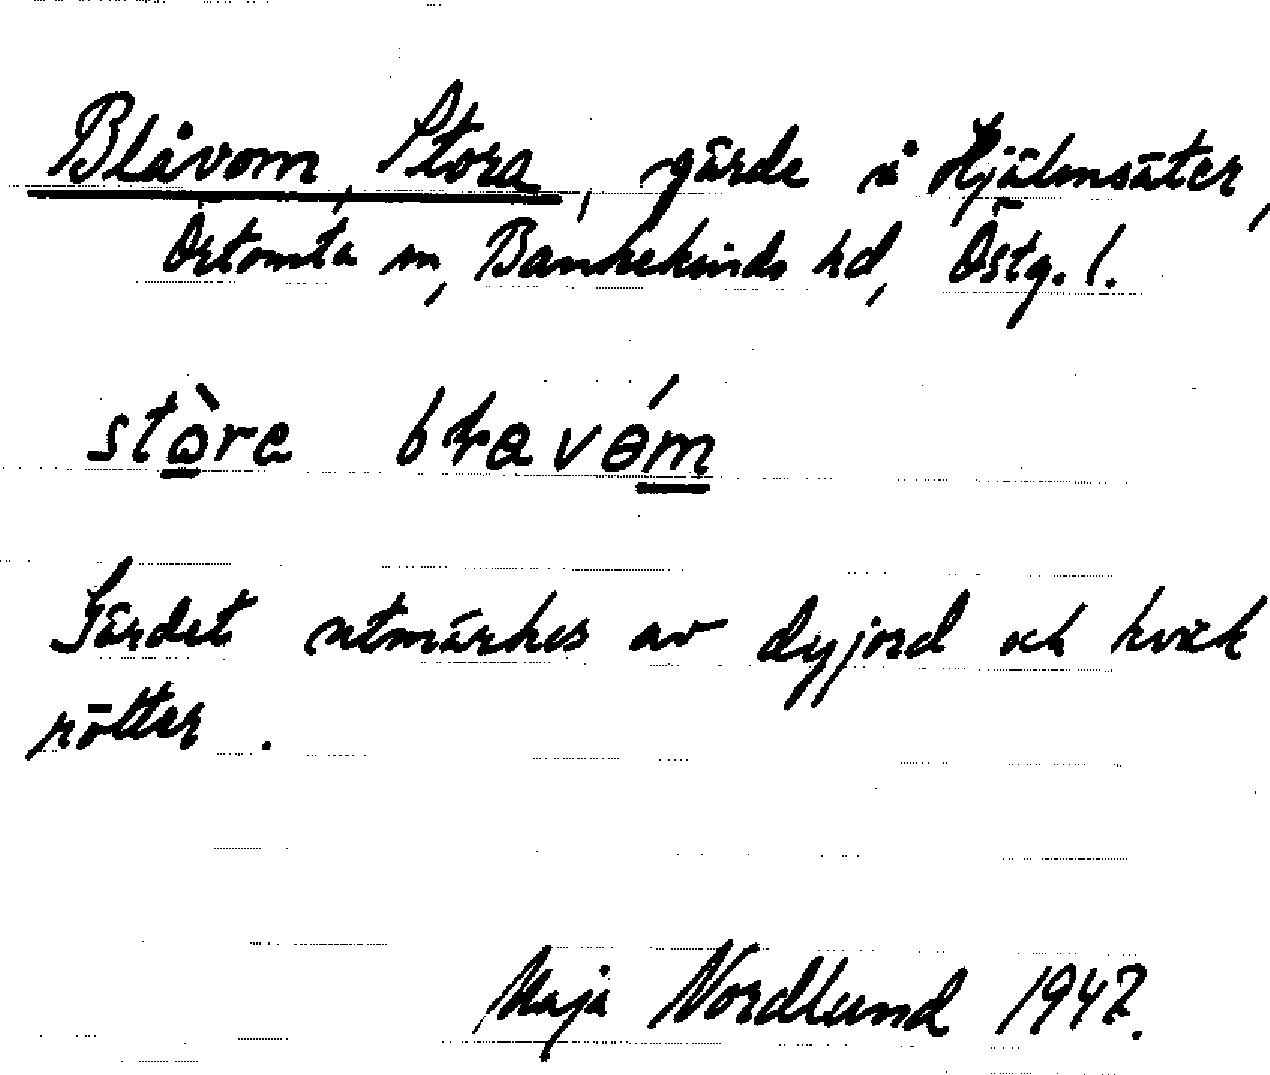 Blåvom, Stora, gärde i Hjälmsäter,
Örtomta sn, Bankekinds hd, Östg. l.
stòre
Gärdet utmärkes av dyjord och kvick
rötter.
Maja Nordlund 1947.